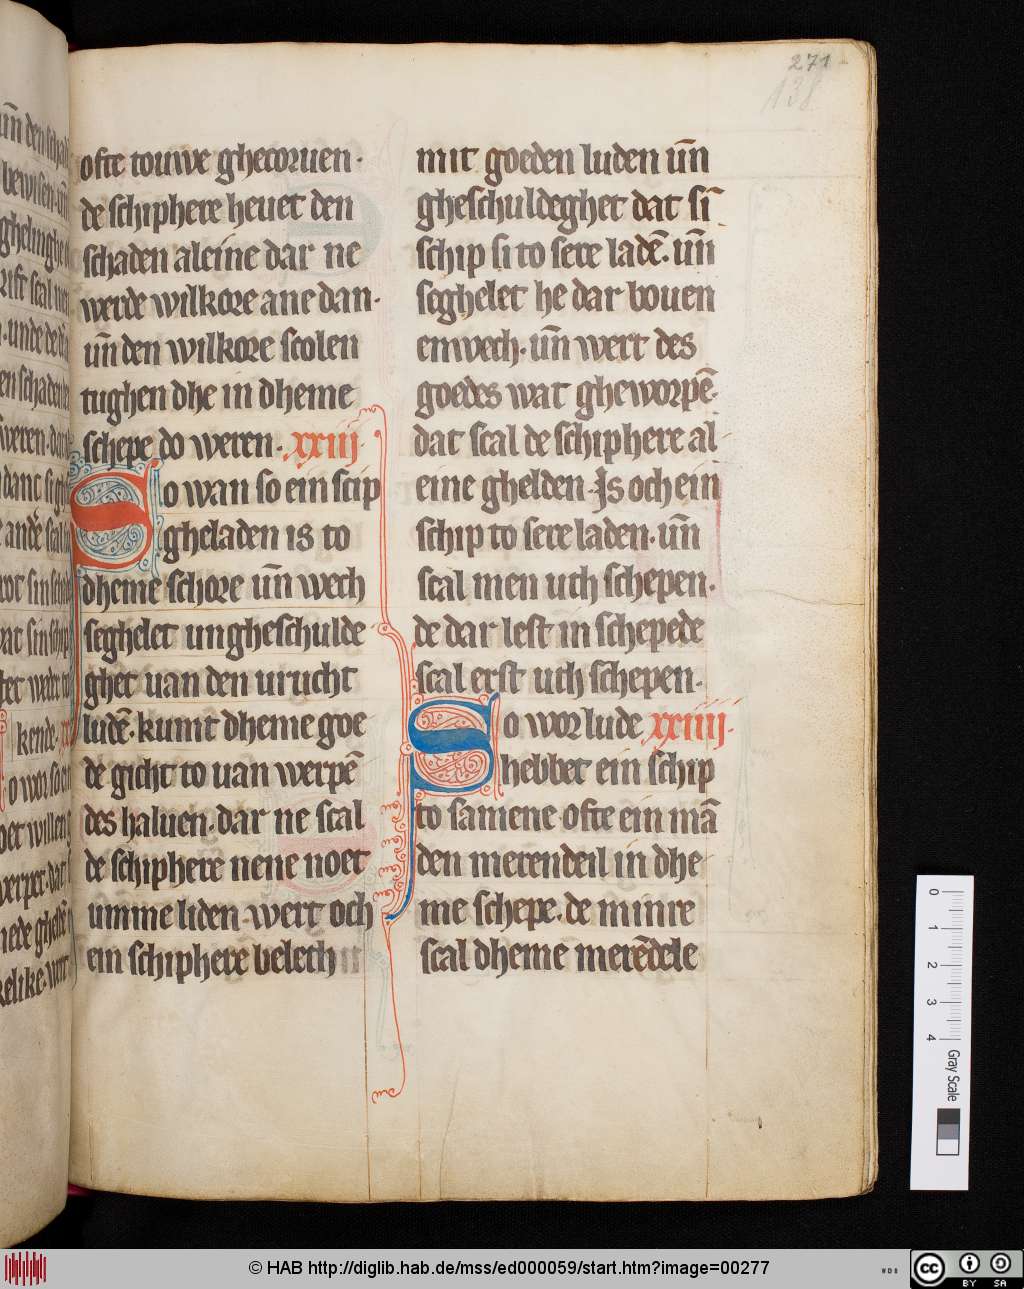 271
138
ofte touwe ghecoruen·
de schiphere heuet den
schaden aleine dar ne
werde wilkore ane dan·
un̄ den wilkore scolen
tughen dhe in dheme
schepe do weren· xxiij·
So wan so ein scip
gheladen is to
dheme schore un̄ wech
seghelet ungheschulde
ghet uan den urucht
ludē· kumt dheme goe
de gicht to uan werpē
des haluen· dar ne scal
de schiphere nene noet
um̄me liden· wert och
ein schiphere belech
mit goeden luden un̄
gheschuldeghet dat sī
schip si to sere ladē· un̄
seghelet he dar bouen
enwech· un̄ wert des
goedes wat gheworpē·
dat scal de schiphere al
eine ghelden· Js och ein
schip to sere laden· un̄
scal men uth schepen·
de dar lest in schepede
scal erst uth schepen·
So wor lude xxiiij·
hebbet ein schip
to samene ofte ein mā
den merendeil in dhe
me schepe· de minre
scal dheme merēdele
0 1 2 3 4
Gray Scale
© HAB http://diglib.hab.de/mss/ed000059/start.htm?image=00277
WDB
cc BY SA